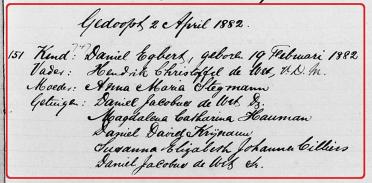 Gedoopt 2 April 1882.
151 Kind: Daniel Egbert, geboren 19 Februari 1882
Vader: Hendrik Christoffel de Wet, V.D.M.
Moeder: Anna Maria Stegmann
Getuigen: Daniel Jacobus de Wet
Magdalena Catharina Hauman
Daniel David Krijnauw
Susanna Elizabeth Johanna Cilliers
Daniel Jacobus de Wet Sr.